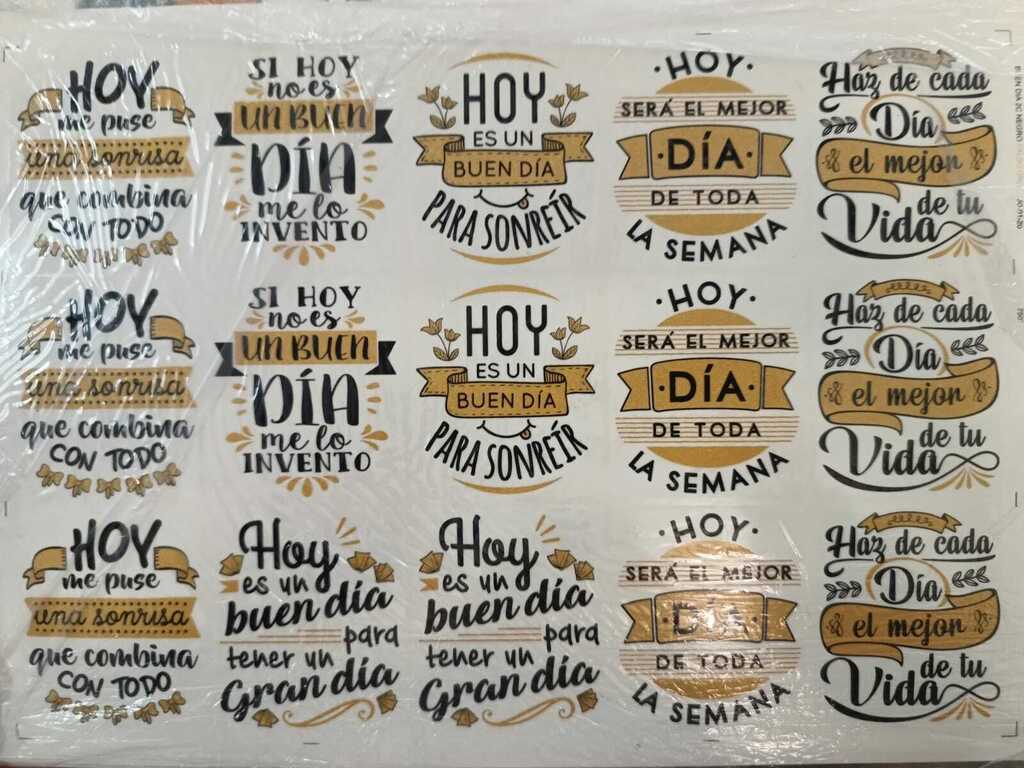 HOY
me puse
una sonrisa
que combina
CON TODO
SI HOY
no es
UN BUEN
DÍA
me lo
INVENTO
HOY
ES UN
BUEN DÍA
PARA SONREÍR
·HOY·
SERÁ EL MEJOR
·DÍA·
DE TODA
LA SEMANA
Haz de cada
Día
el mejor
de tu
Vida
HOY
me puse
una sonrisa
que combina
CON TODO
SI HOY
no es
UN BUEN
DÍA
me lo
INVENTO
HOY
ES UN
BUEN DÍA
PARA SONREÍR
·HOY·
SERÁ EL MEJOR
·DÍA·
DE TODA
LA SEMANA
Haz de cada
Día
el mejor
de tu
Vida
HOY
me puse
una sonrisa
que combina
CON TODO
Hoy
es un
buen día
para
tener un
Gran día
Hoy
es un
buen día
para
tener un
Gran día
·HOY·
SERÁ EL MEJOR
·DÍA·
DE TODA
LA SEMANA
Haz de cada
Día
el mejor
de tu
Vida
EN DIA 2C NEGRO